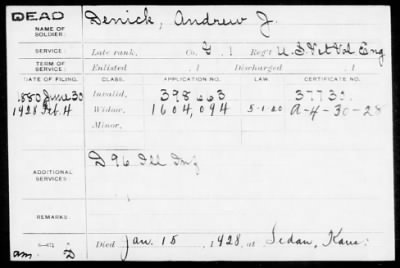 DEAD
NAME OF SOLDIER: Denick, Andrew J.
SERVICE: Late rank, Co. G. 1 Reg't U.S. Vet Vol Eng
TERM OF SERVICE: Enlisted , 1 Discharged , 1
DATE OF FILING. CLASS. APPLICATION NO. LAW. CERTIFICATE NO.
1880 June 30 Invalid, 398,663 377,30
1928 Widow, 1604,094 5-1-20 A-4-30-28
Minor,
ADDITIONAL SERVICES: D 96 Ill Inf
REMARKS:
Died Jan. 15, 1928, at Sedan, Kans.